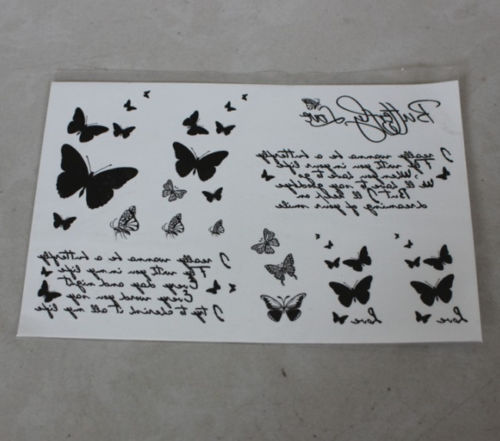 Butterfly Love
I really wanna be a butterfly
Fly with you in your life
to go
I'll have to say goodbye
But I'll
dreaming of your smile
I really wanna be a butterfly
Fly with you in my life
Every day and night
Every word you say
I try to all my life
Love
Love